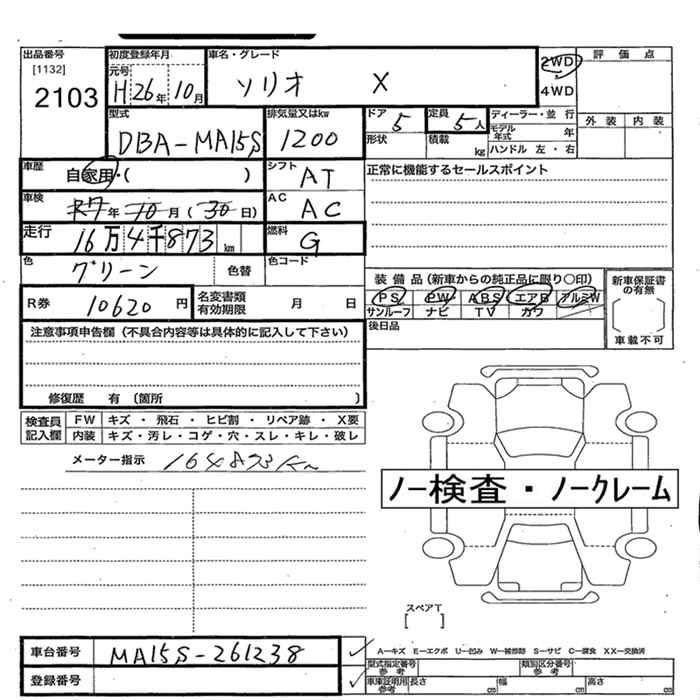 出品番号
[1132]
2103
初度登録年月
元号
H 26年 10月
車名・グレード
ソリオ X
2WD
4WD
評価点
外装 内装
型式
DBA-MA15S
排気量又はkw
1200
ドア 5
形状
定員 5人
積載 kg
ディーラー・並行
モデル年式 年
ハンドル 左・右
車歴
自家用・( )
シフト
AT
正常に機能するセールスポイント
車検
R7年 10月 (30日)
AC
AC
走行
16万4千873km
燃料
G
色
グリーン
色替
色コード
装備品(新車からの純正品に限り○印)
PS PW ABS エアB アルミW
サンルーフ ナビ TV カワ
後日品
新車保証書の有無
車載不可
R券 10620円
名変書類有効期限 月 日
注意事項申告欄(不具合内容等は具体的に記入して下さい)
修復歴 有 〔箇所 〕
検査員記入欄
FW キズ・飛石・ヒビ割・リペア跡・X要
内装 キズ・汚レ・コゲ・穴・スレ・キレ・破レ
メーター指示 164873km
ノー検査・ノークレーム
スペアT
車台番号 MA15S-261238
登録番号
A―キズ E―エクボ U―凹み W―補修跡 S―サビ C―腐食 XX―交換済
型式指定番号 参考
類別区分番号 参考
車庫証明用 参考
長さ cm 幅 cm 高さ cm